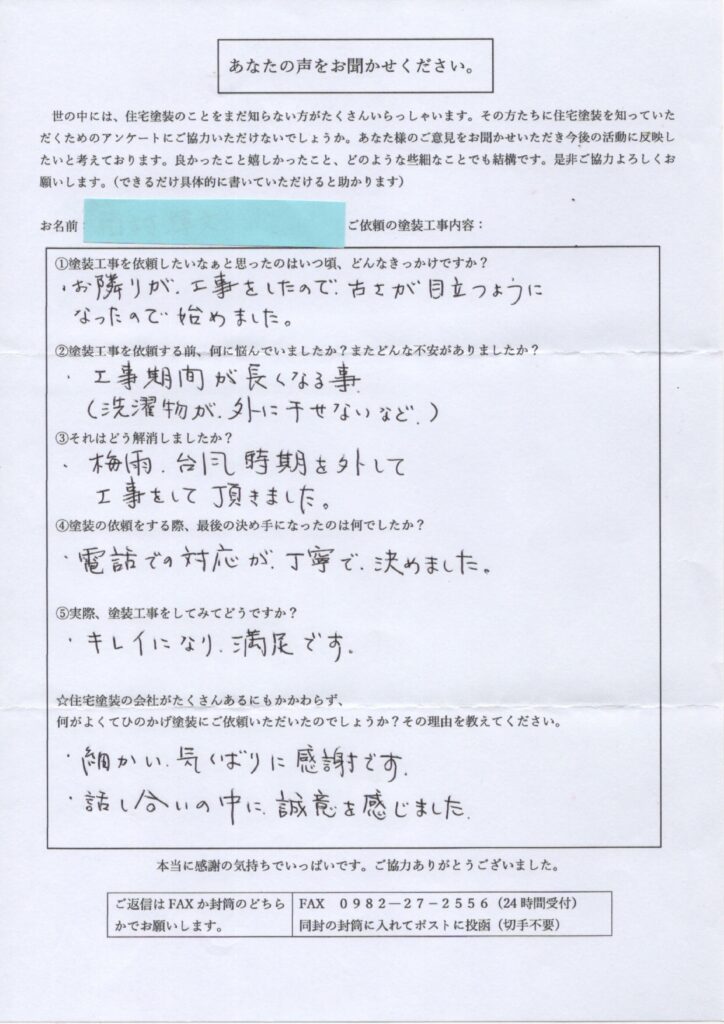 あなたの声をお聞かせください。
世の中には、住宅塗装のことをまだ知らない方がたくさんいらっしゃいます。その方たちに住宅塗装を知っていた
だくためのアンケートにご協力いただけないでしょうか。あなた様のご意見をお聞かせいただき今後の活動に反映し
たいと考えております。良かったこと嬉しかったこと、どのような些細なことでも結構です。是非ご協力よろしくお
願いします。（できるだけ具体的に書いていただけると助かります）
お名前： ご依頼の塗装工事内容：
①塗装工事を依頼したいなぁと思ったのはいつ頃、どんなきっかけですか？
・お隣りが、工事をしたので、古さが目立つように
なったので始めました。
②塗装工事を依頼する前、何に悩んでいましたか？またどんな不安がありましたか？
・工事期間が長くなる事、
（洗濯物が、外に干せないなど、）
③それはどう解消しましたか？
・梅雨、台風時期を外して
工事をして頂きました。
④塗装の依頼をする際、最後の決め手になったのは何でしたか？
・電話での対応が、丁寧で、決めました。
⑤実際、塗装工事をしてみてどうですか？
・キレイになり、満足です。
☆住宅塗装の会社がたくさんあるにもかかわらず、
何がよくてひのかげ塗装にご依頼いただいたのでしょうか？その理由を教えてください。
・細かい、気くばりに感謝です。
・話し合いの中に、誠意を感じました。
本当に感謝の気持ちでいっぱいです。ご協力ありがとうございました。
ご返信は FAX か封筒のどちら
かでお願いします。
FAX ０９８２－２７－２５５６（24 時間受付）
同封の封筒に入れてポストに投函（切手不要）